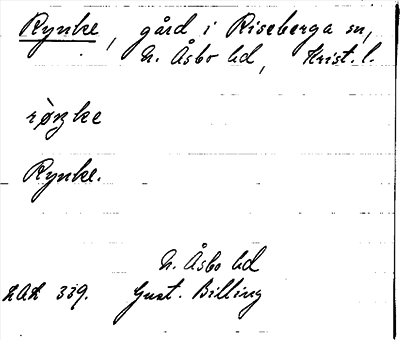 Rynke, gård i Riseberga sn,
N. Åsbo hd, Krist. l.
rön̥ke
Rynke.
N. Åsbo hd
LAL 339. Gust. Billing